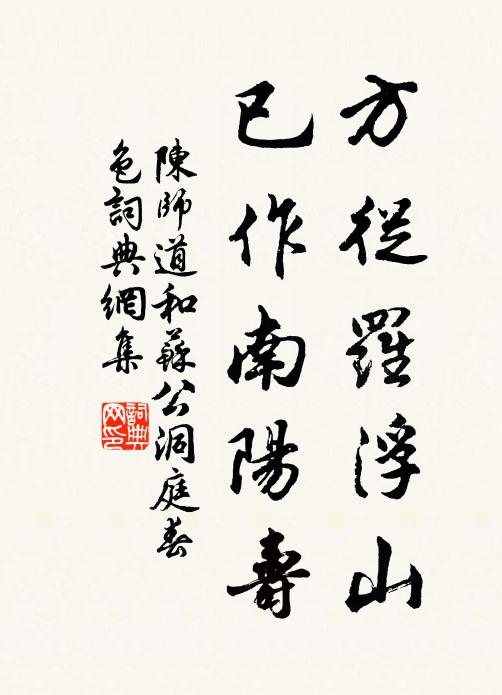 方從羅浮山
已作南陽壽
陳師道和蘇公洞庭春
色詞典網集
詞典网印